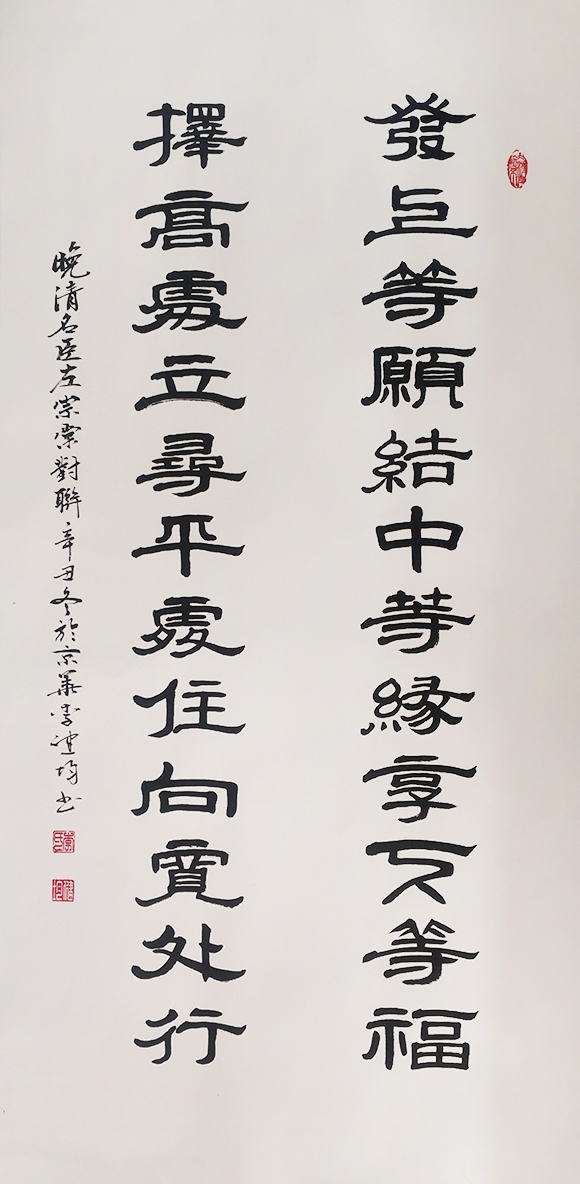 發上等願結中等緣享下等福
擇高處立尋平處住向寬处行
晚清名臣左宗棠對聯辛丑冬於京華李建均书